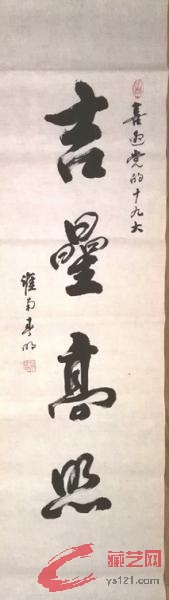 喜迎党的十九大
吉星高照
淮南孝明
藏艺网
ys121.com